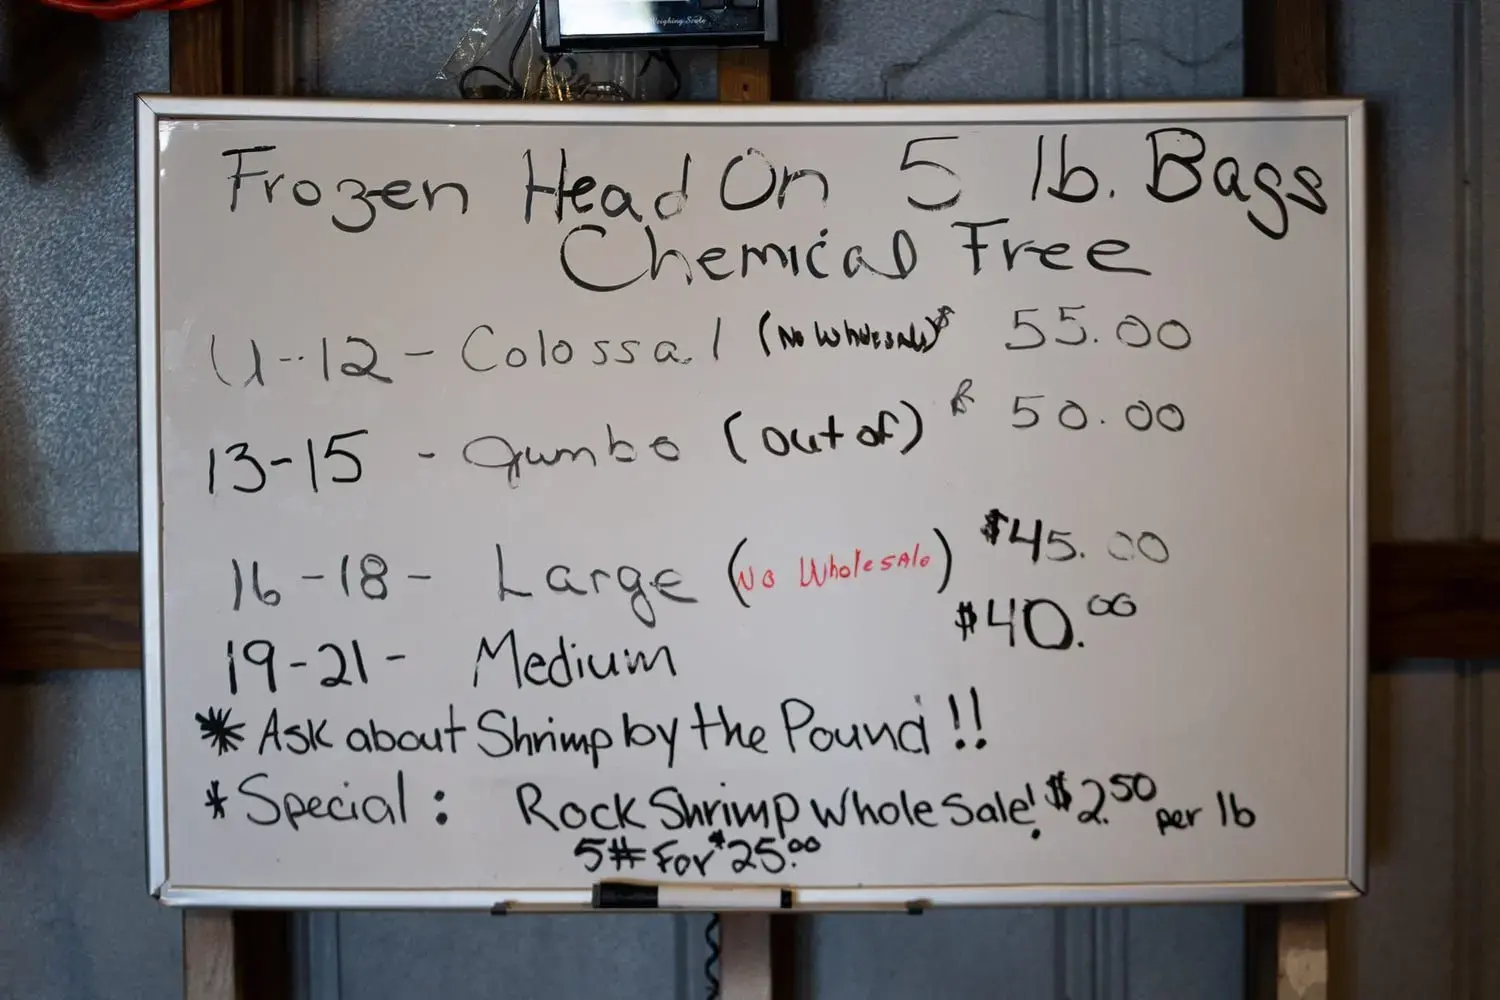 Weighing Scale
Frozen Head On 5 lb. Bags
Chemical Free
11-12 - Colossal (No Wholesale) $ 55.00
13-15 - Jumbo (out of) $ 50.00
16-18- Large (No Wholesale) $45.00
19-21- Medium $40.00
* Ask about Shrimp by the Pound!!
* Special: Rock Shrimp Wholesale! $2.50 per lb
5# For $25.00